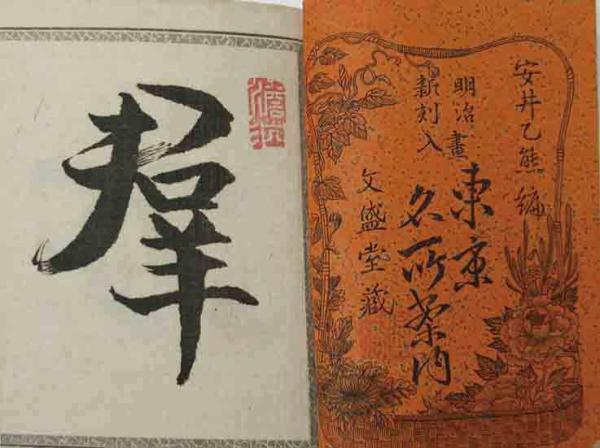 安井乙熊編
明治畫
新刻入
東京
名所案内
文盛堂藏
羣